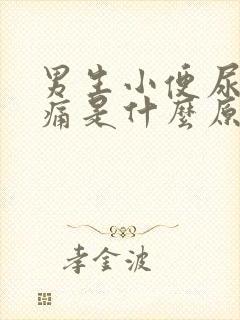 男生小便尿
痛是什麼原
李金波